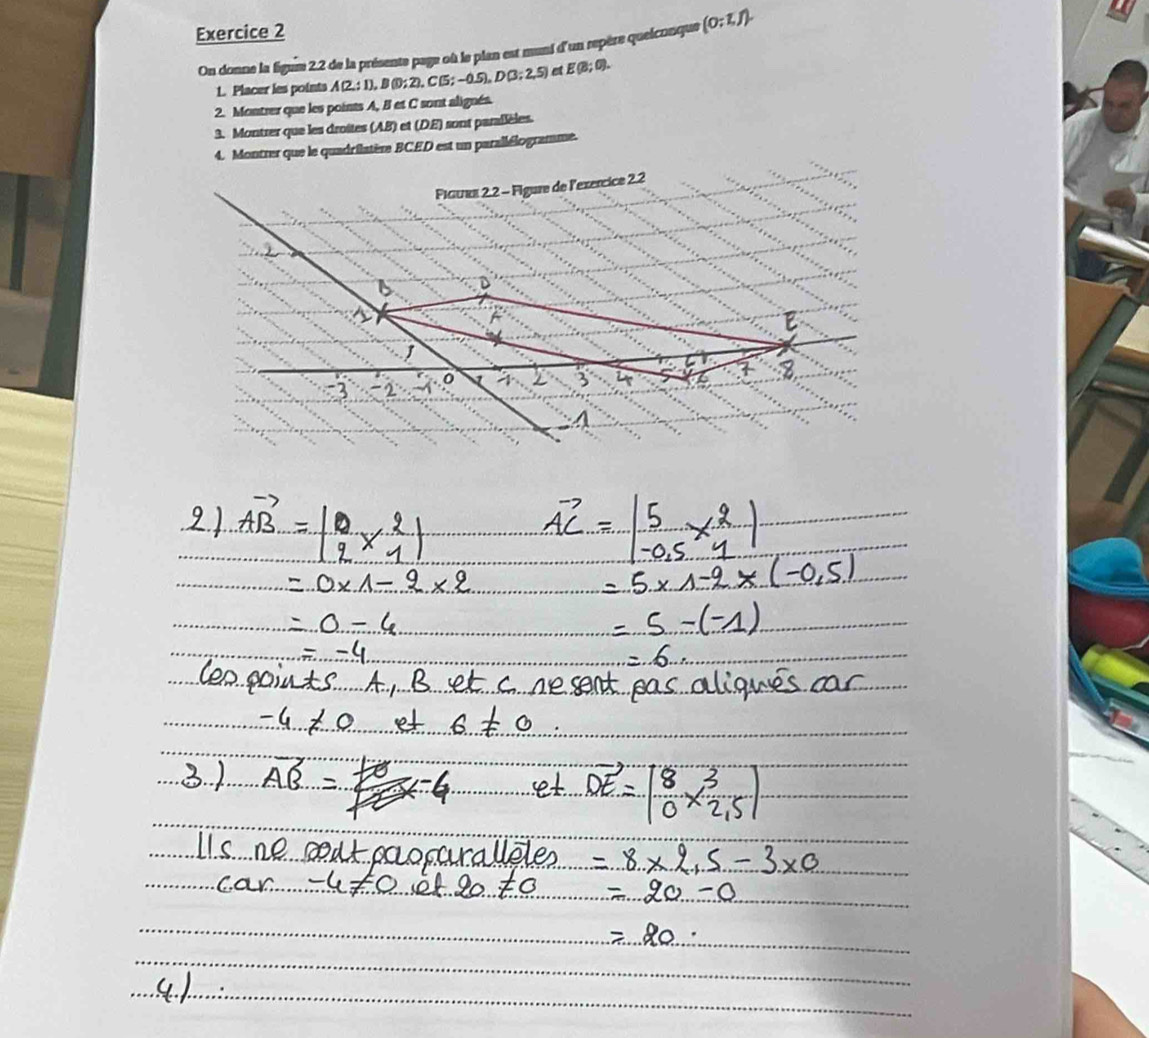 Exercice 2
On donne la figure 2.2 de la présente page où le plan est muni d'un repère quelconque (O; I, J).
1. Placer les points A (2,; 1), B (0; 2), C (5; −0.5), D (3; 2,5) et E (8; 0).
2. Montrer que les points A, B et C sont alignés.
3. Montrer que les droites (AB) et (DE) sont parallèles.
4. Montrer que le quadrilatère BCED est un parallélogramme.
FIGURE 2.2 – Figure de l'exercice 2.2
2
B D
1 A E
J C
-3 -2 -1 0 1 2 3 4 5 6 7 8
-1
2.) AB = | 0 × 2 | AC = | 5 × 2 |
2 1 -0,5 1
= 0 × 1 - 2 × 2 = 5 × 1 - 2 × (-0,5)
= 0 - 4 = 5 - (-1)
= -4 = 6.
les points A, B et C ne sont pas alignés car
-4 ≠ 0 et 6 ≠ 0.
3.) AB = -4 et DE = | 8 × 3 |
0 2,5
Ils ne sont pas parallèles = 8 × 2,5 - 3 × 0
car -4 ≠ 0 et 20 ≠ 0 = 20 - 0
= 20.
4.)